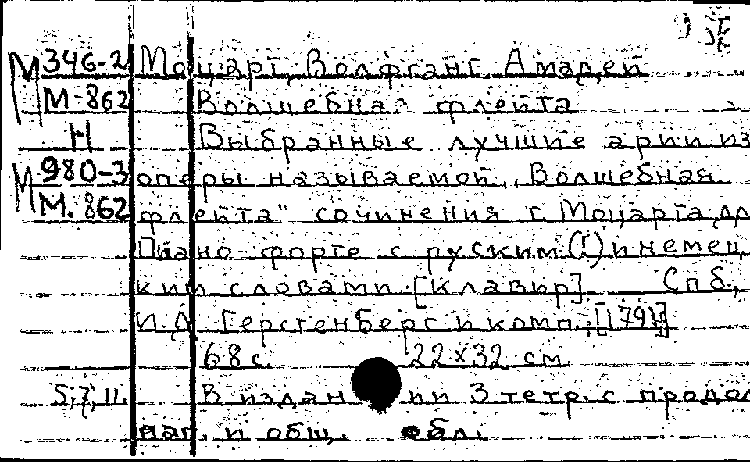 М 346-2 Моцарт, Вольфганг Амадей
М-862 Волшебная флейта
Н Выбранные лучшие арии из
М 980-3 оперы называемой „Волшебная
М. 862 флейта" сочинения г Моцарта, для
Пиано-форте с руским (!) и немец
ким словами. [Клавир]. Спб.,
И.Д. Герстенберг и комп., [179
68 с. 22 х 32 см
5,7,11. В издан ии 3 тетр. с продол
наг. и общ. обл.